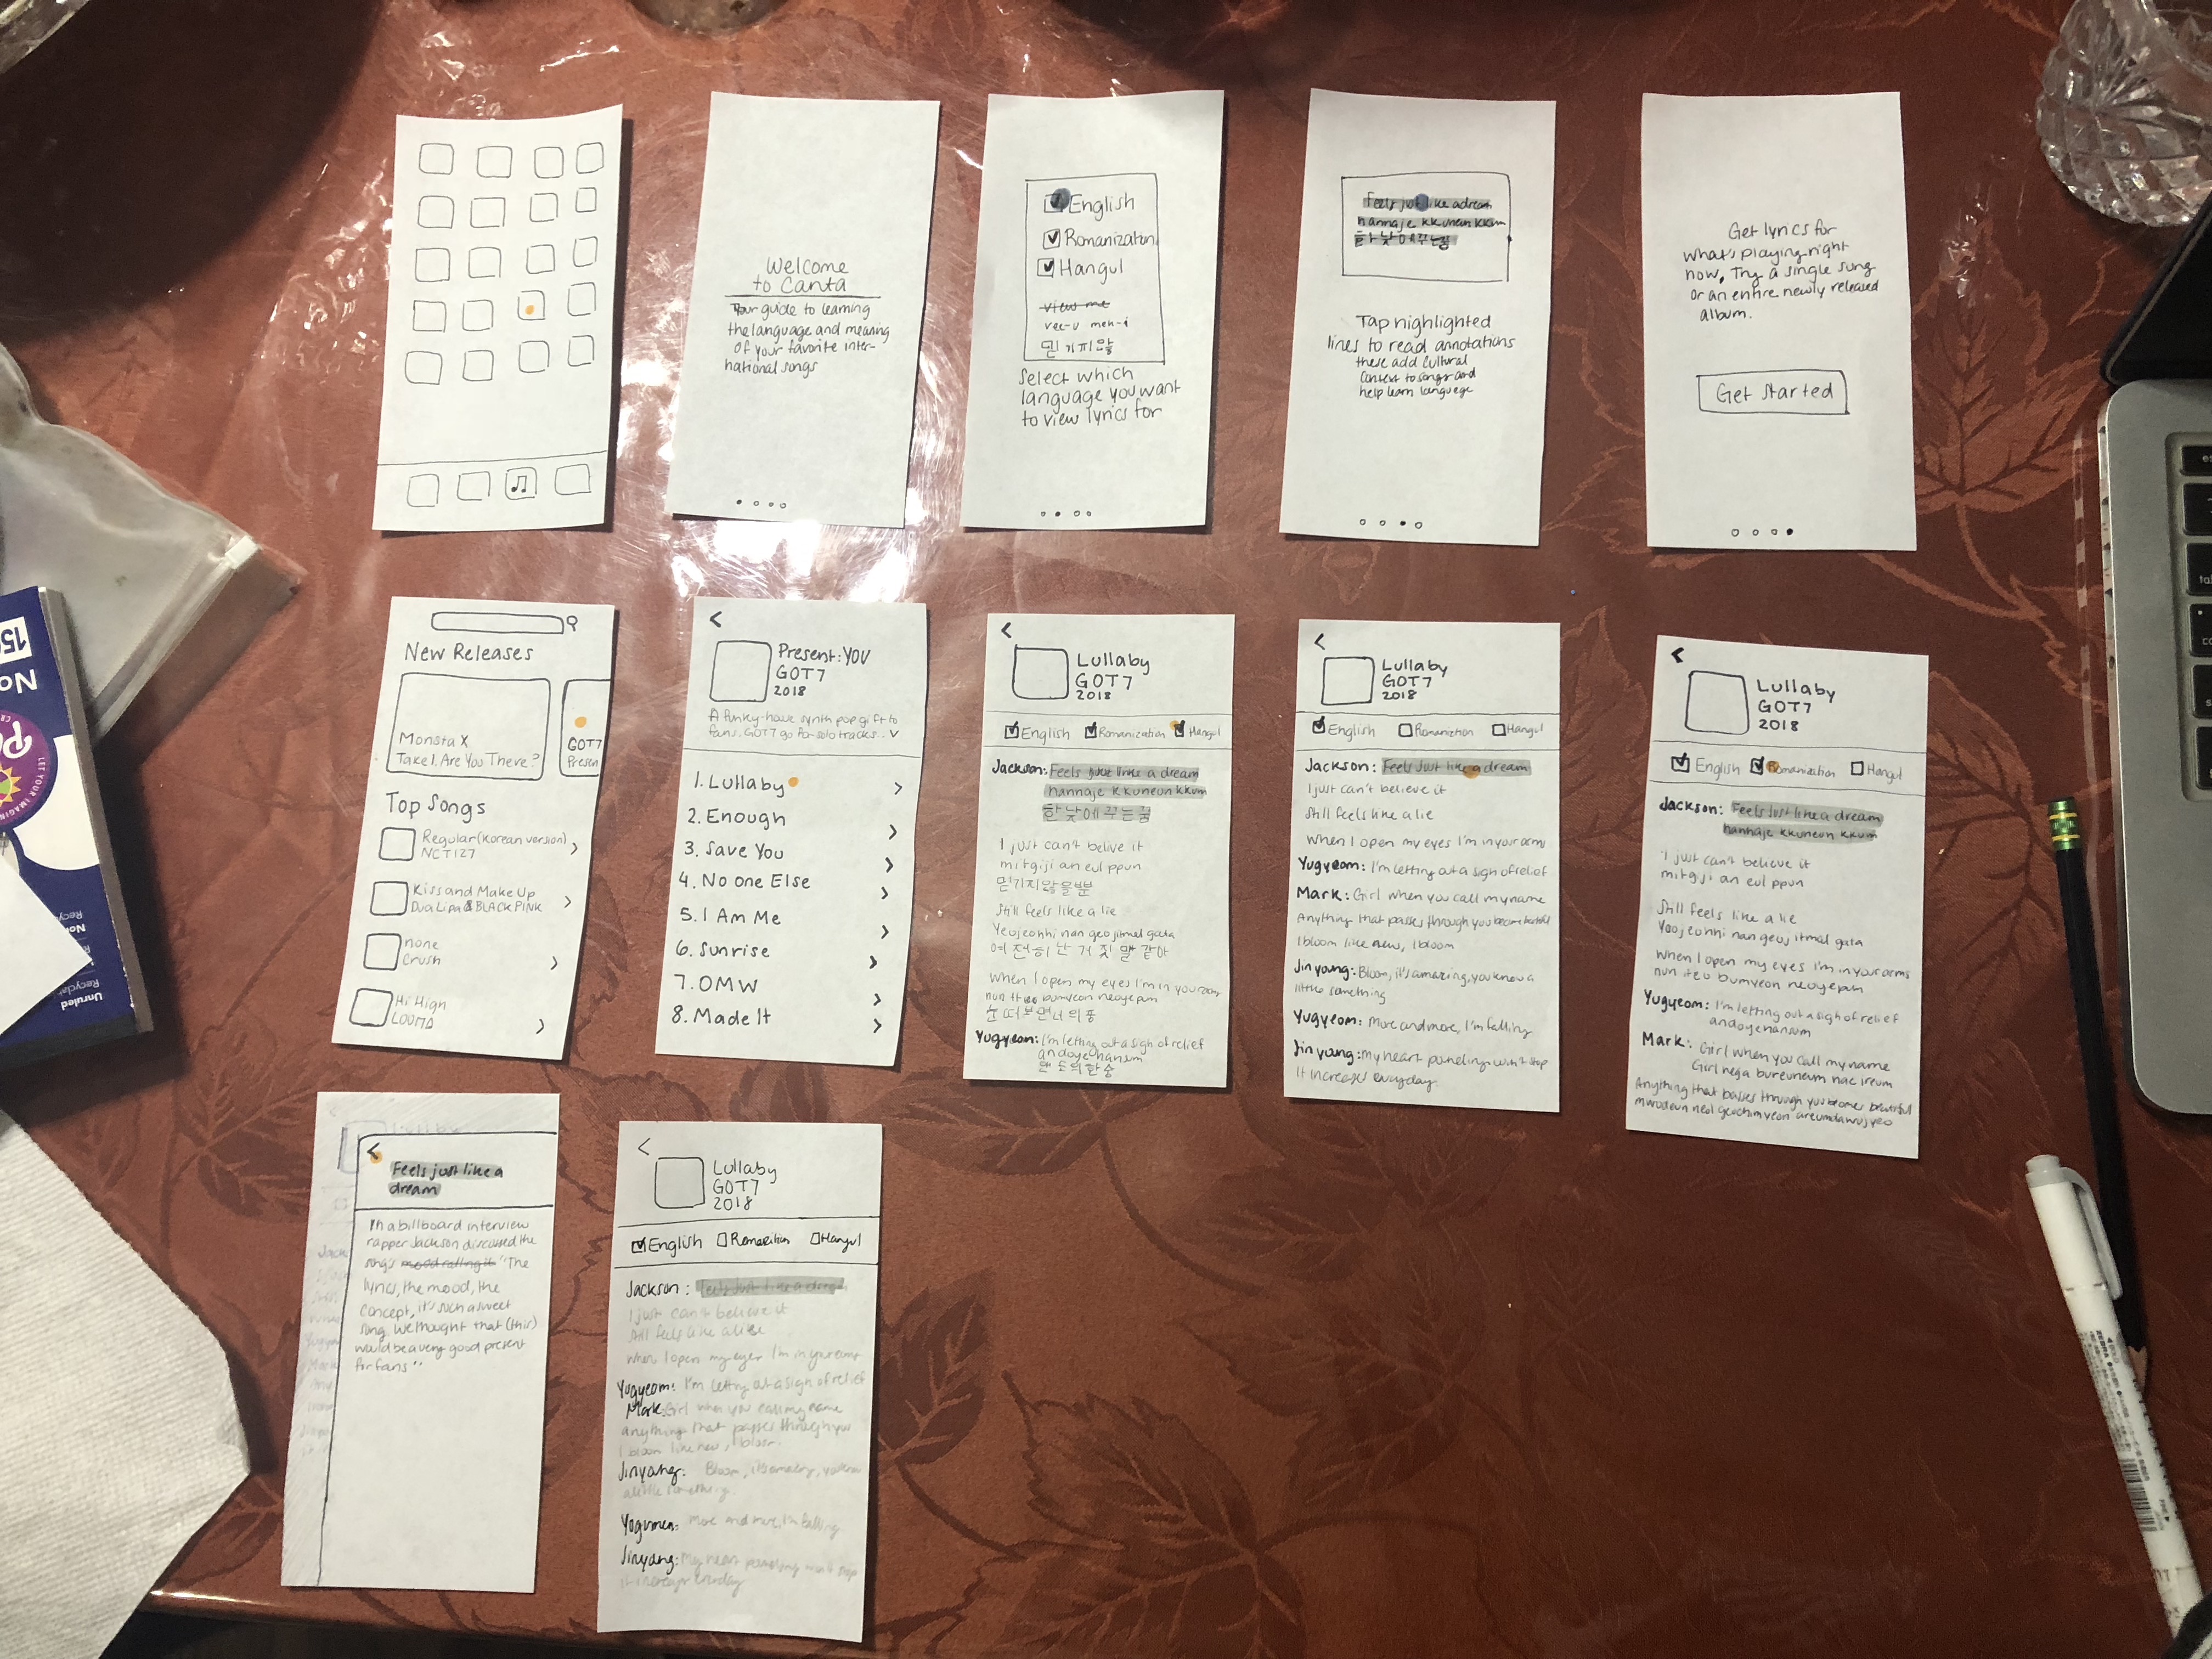 Welcome
to Canta
Your guide to learning
the language and meaning
of your favorite inter-
national songs
English
Romanization
Hangul
view me
믿기지않
Select which
language you want
to view lyrics for
Feels just like a dream
hannaje kkuneun kkum
한낮에꾸는꿈
Tap highlighted
lines to read annotations
these add cultural
context to songs and
help learn language
Get lyrics for
what's playing right
now. Try a single song
or an entire newly released
album.
Get Started
New Releases
Monsta X
Take.1 Are You There?
GOT7
Presen
Top Songs
Regular (Korean version)
NCT127
Kiss and Make Up
Dua Lipa & BLACKPINK
none
Crush
Hi High
LOONA
Present: YOU
GOT7
2018
A funky-house synth pop gift to
fans. GOT7 go for solo tracks..
1. Lullaby
2. Enough
3. Save You
4. No one Else
5. I Am Me
6. Sunrise
7. OMW
8. Made It
Lullaby
GOT7
2018
English Romanization Hangul
Jackson: Feels just like a dream
hannaje kkuneun kkum
한낮에 꾸는 꿈
I just can't belive it
mitgiji an eul ppun
믿기지않을뿐
Still feels like a lie
Yeojeonhi nan geojitmal gata
여전히 난 거짓말 같아
When I open my eyes I'm in your arms
Yugyeom: I'm letting out a sigh of relief
andoye hansum
Lullaby
GOT7
2018
English Romanization Hangul
Jackson: Feels just like a dream
I just can't believe it
Still feels like a lie
When I open my eyes I'm in your arms
Yugyeom: I'm letting out a sign of relief
Mark: Girl when you call my name
Anything that passes through you become beautiful
I bloom like new, I bloom
Jinyoung: Bloom, it's amazing, you know a
little something
Yugyeom: More and more, I'm falling
Jinyoung: My heart pounding won't stop
It increases everyday
Lullaby
GOT7
2018
English Romanization Hangul
Jackson: Feels just like a dream
hannaje kkuneun kkum
I just can't believe it
mitgiji an eul ppun
Still feels like a lie
Yeojeonhi nan geojitmal gata
When I open my eyes I'm in your arms
Yugyeom: I'm letting out a sigh of relief
andoye hansum
Mark: Girl when you call my name
Girl nega bureuneun nae ireum
Anything that passes through you becomes beautiful
Feels just like a
dream
In a billboard interview
rapper Jackson discussed the
song's mood calling it "The
lyrics, the mood, the
concept, it's such a sweet
song. We thought that (this)
would be a very good present
for fans"
Lullaby
GOT7
2018
English Romanization Hangul
Jackson: Feels just like a dream
I just can't believe it
Still feels like a lie
When I open my eyes I'm in your arms
Yugyeom: I'm letting out a sigh of relief
Mark: Girl when you call my name
anything that passes through you
I bloom like new, I bloom.
Jinyoung: Bloom, it's amazing, you know
a little something.
more and more, I'm falling
Jinyoung: My heart pounding won't stop
it increases everyday
15
No
Unruled
LET YOUR IMAGIN